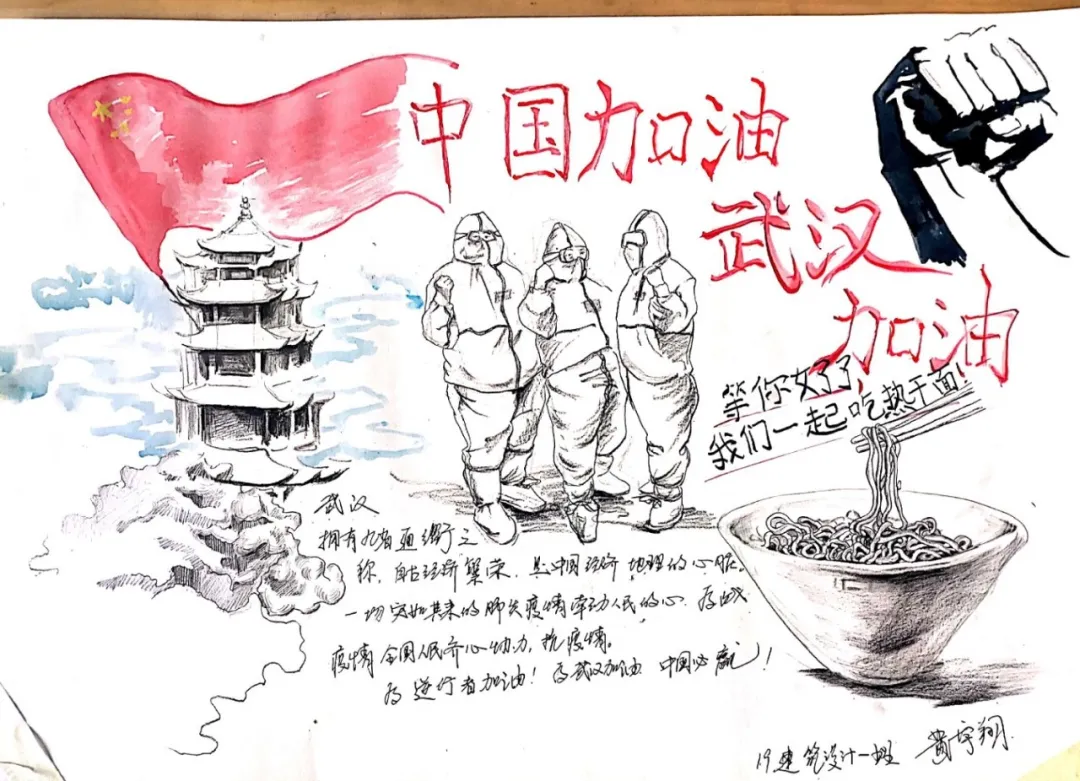 中国加油
武汉
加油
等你好了
我们一起吃热干面!
武汉
拥有九省通衢之
称,自古经济繁荣,是中国经济地理的心脏。
一切突如其来的肺炎疫情牵动人民的心.为战
疫情全国人民齐心协力,抗疫情。
为逆行者加油!为武汉加油 中国必赢!
19建筑设计一班 黄宇翔